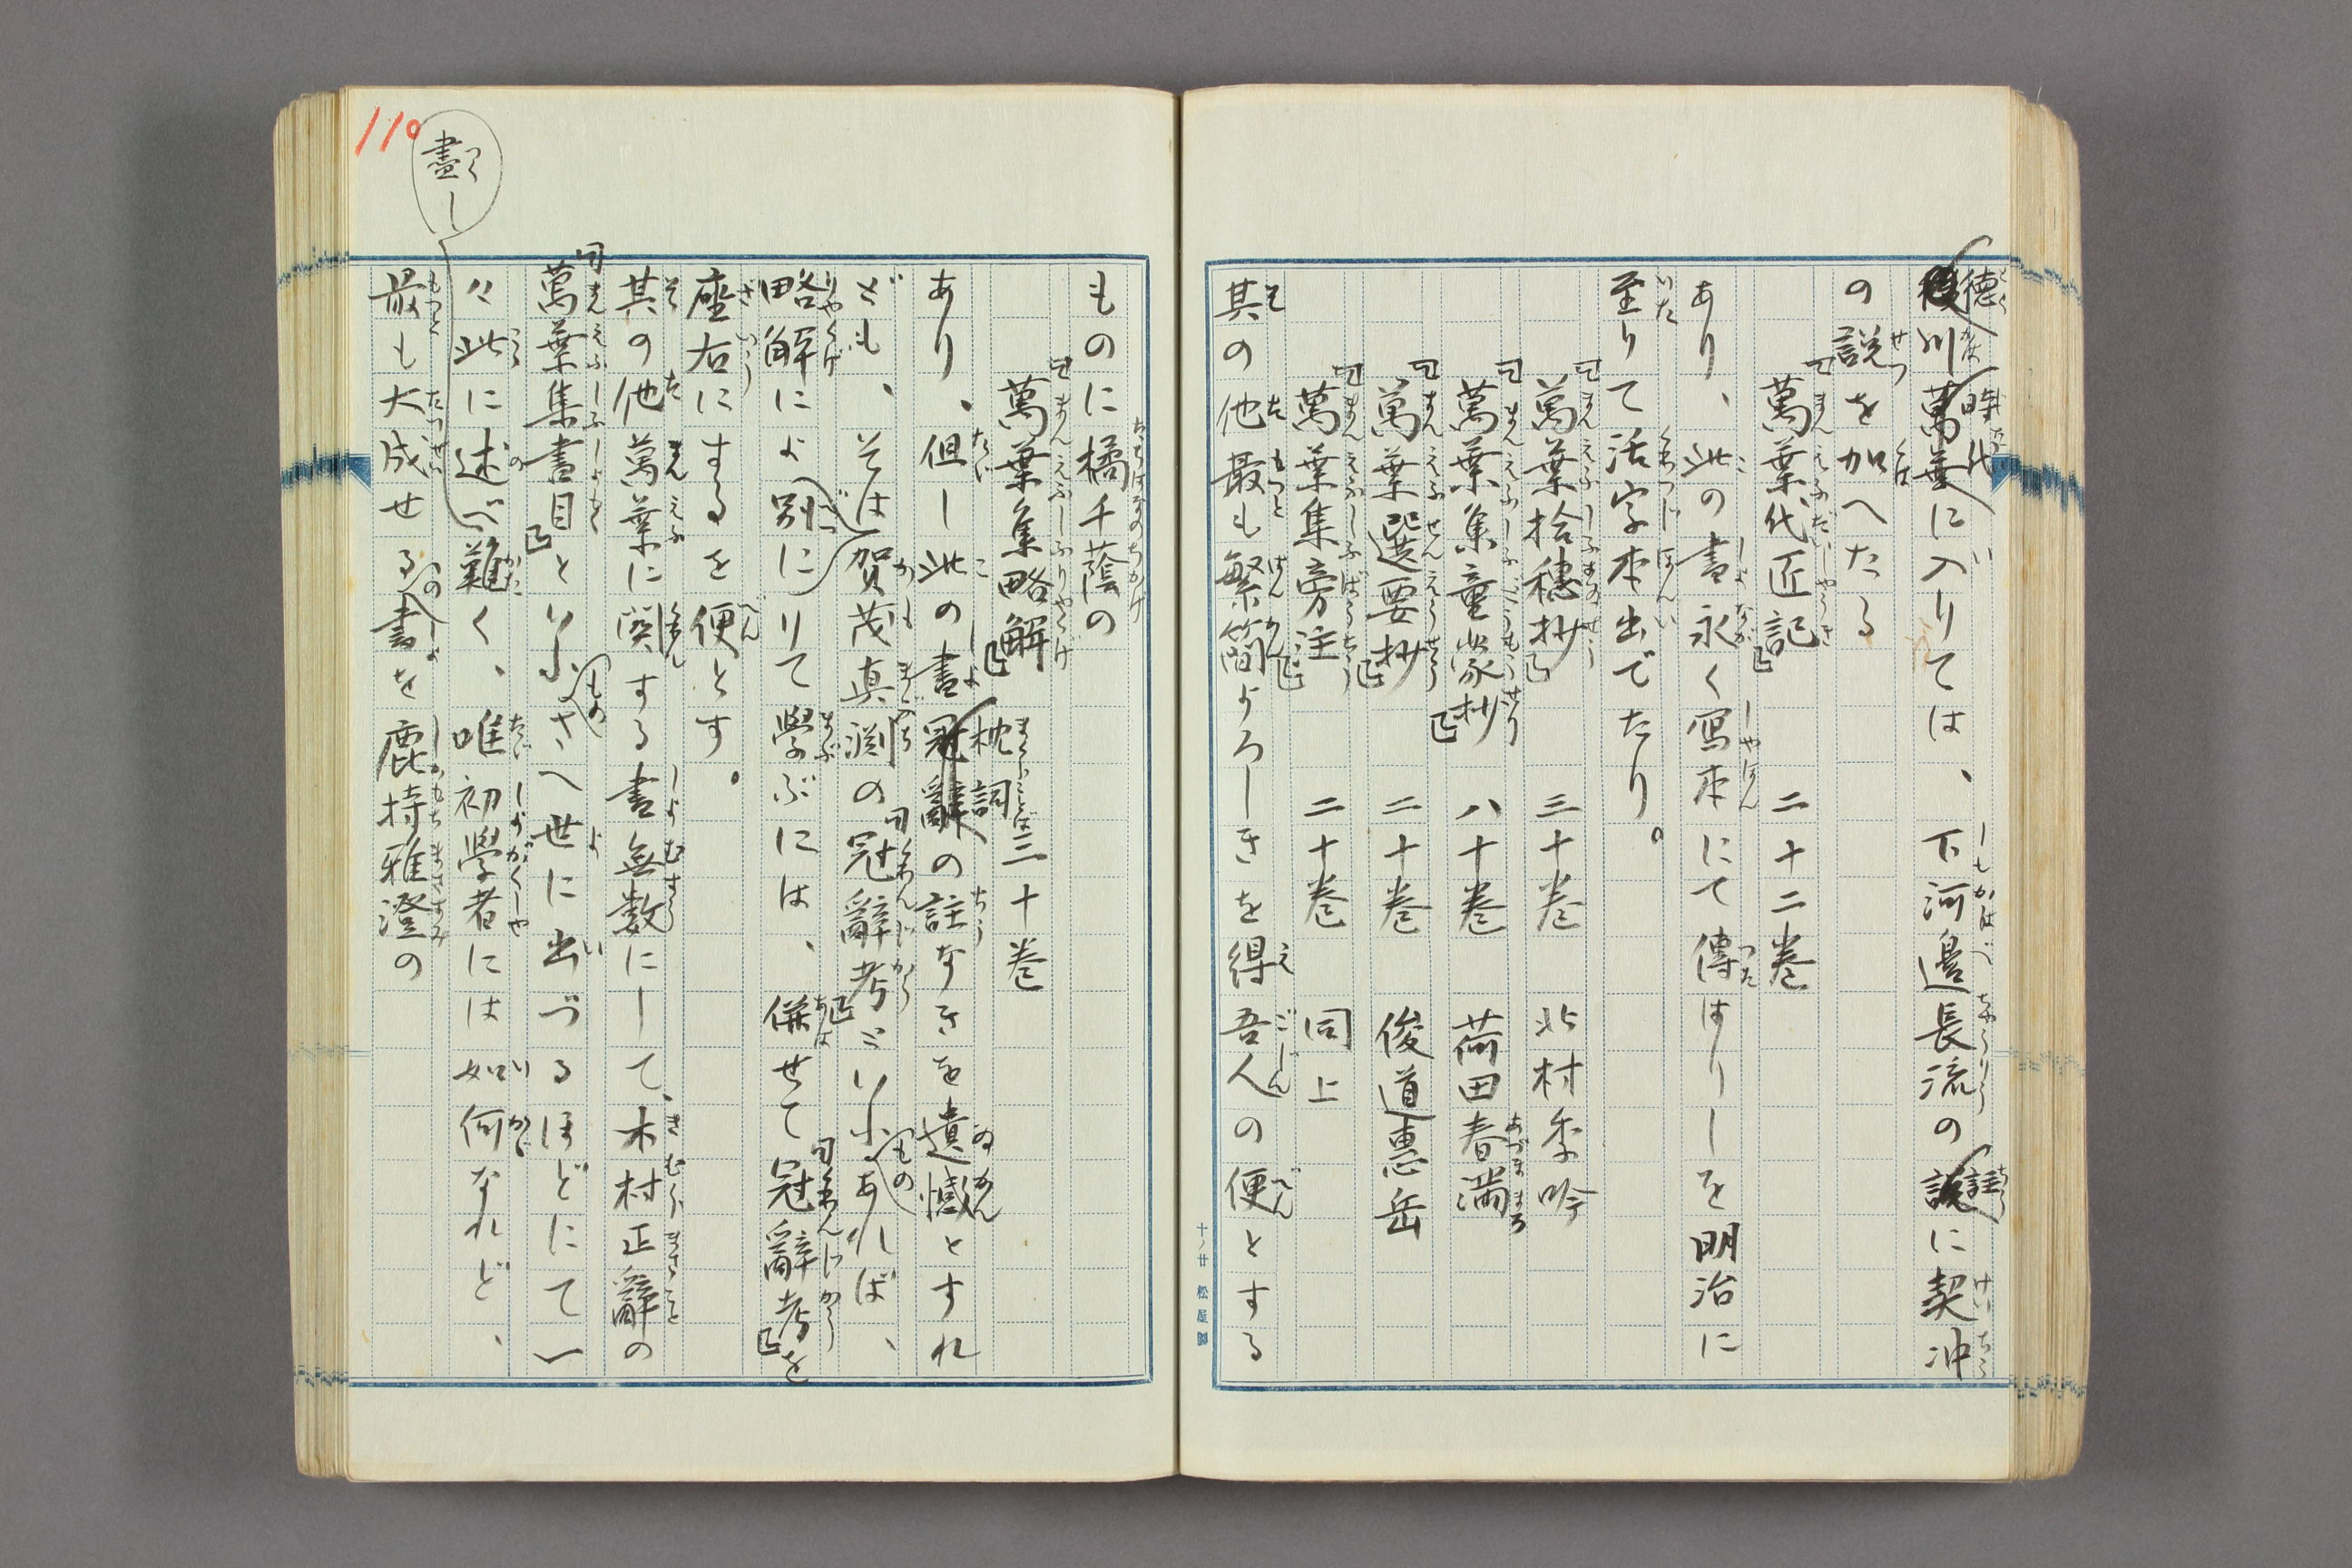 徳川時代に入りては、下河邉長流の註に契冲
の説を加へたる
『萬葉代匠記』 二十二巻
あり、此の書永く寫本にて傳はりしを明治に
至りて活字本出でたり。
『萬葉拾穂抄』 三十巻 北村季吟
『萬葉集童蒙抄』 八十巻 荷田春満
『萬葉選要抄』 二十巻 俊道惠岳
『萬葉集旁注』 二十巻 同上
其の他最も繁簡よろしきを得吾人の便とする
十ノ廿 松屋製
ものに橘千蔭の
『萬葉集略解』 三十巻
あり、但し此の書枕詞の註なきを遺憾とすれ
ども、そは賀茂真淵の『冠辭考』といふものあれば、
略解によりて學ぶには、併せて『冠辭考』を
座右にするを便とす。
其の他萬葉に関する書無数にして、木村正辭の
『萬葉集書目』といふものさへ世に出づるほどにて一
々此に述べ盡し難く、唯初學者には如何なれど、
最も大成せるものを鹿持雅澄の
110